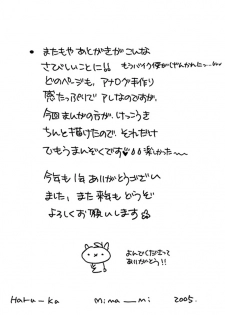 ● またもや あとがきがこんな
さびしいことに!! もうバイク便がぜんかれたっ…
どのページも、アナログ手作り
感たっぷりで アレなのですが、
今回まんがの方が、けっこうき
ちんと描けたので、それだけ
でもうまんぞくです 楽しかった〜
今年も1年ありがとうござい
ました、また来年も どうぞ
よろしくお願いします
よんでくださって
ありがとう!!
Haru-ka mima_mi 2005.